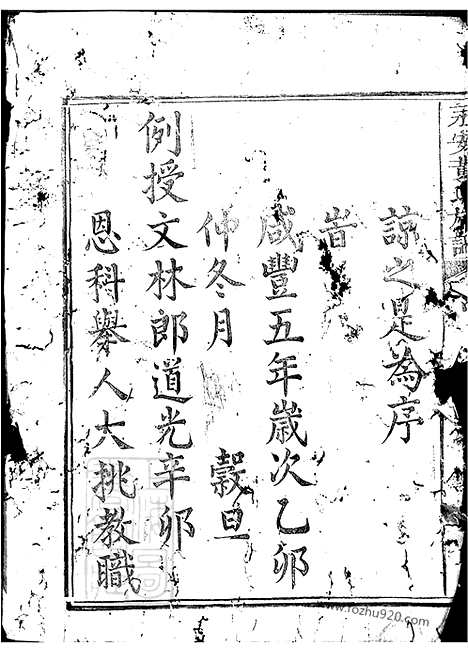 永安黃氏族譜
諒之是為序
旹
咸豐五年歲次乙卯
仲冬月　穀旦
例授文林郎道光辛卯
恩科舉人大挑教職
www.fozhu920.com